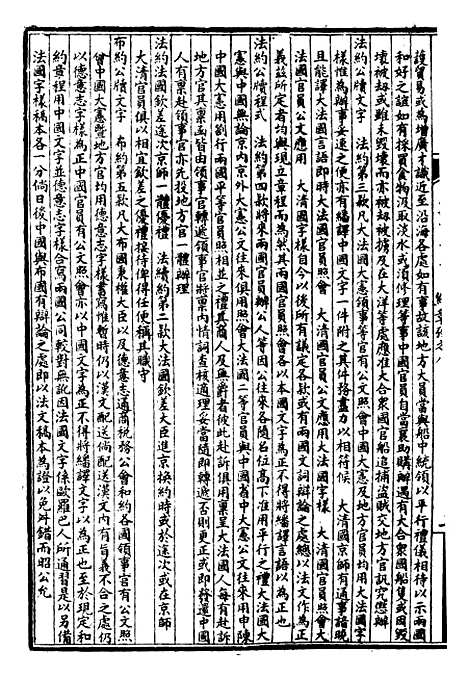 護貿易或為增廣才識近至沿海各處如有事故該地方大員當與船中統領以平行禮儀相待以示兩國
和好之誼如有採買食物汲取淡水或須修理等事中國官員自當襄助購辦遇有大合衆國船隻或因毀
壞被劫或雖未毀壞而亦被劫被擄及在大洋等處應准大合衆國官船追捕盜賊交地方官訊究懲辦
法約公牘文字　法約第三款凡大法國大憲領事等官有公文照會中國大憲及地方官員均用大法國字
樣惟為辦事妥速之便亦有繙譯中國文字一件附之其件務盡力以相符候　大清國京師有通事諳曉
且能譯大法國言語即時大法國官員照會　大清國官員公文應用大法國字樣　大清國官員照會大
法國官員公文應用　大清國字樣自今以後所有議定各款或有兩國文詞辯論之處總以法文作為正
義茲所定者均與現立章程而為然其兩國官員照會各以本國文字為正不得將繙譯言語以為正也
法約公牘程式　法約第四款將來兩國官員辦公人等因公往來各隨名位高下准用平行之禮大法國大
憲與中國無論京內京外大憲公文往來俱用照會大法國二等官員與中國省中大憲公文往來用申陳
中國大憲用劄行兩國平等官員照相並之禮其商人及無爵者彼此赴訴俱用稟呈大法國人每有赴訴
地方官其稟函皆由領事官轉遞領事官將稟內情詞查核適理妥當隨即轉遞否則更正或即發還中國
人有稟赴領事官亦先投地方官一體辦理
法約法國欽差大臣到京師一體優禮　法續約第二款大法國欽差大臣進京換約時或於途次或在京師
大清官員俱以相宜欽差之優禮接待俾得任便稱其職守
布約公牘文字　布約第五款凡大布國秉權大臣以及德意志通商稅務公會和約各國領事官有公文照
會中國大憲暨地方官均用德意志字樣書寫惟暫時仍以漢文配送倘配送漢文內有旨義不合之處仍
以德意志字樣為正中國官員有公文照會亦以中國文字為正不得將繙譯文字以為正也至於現定和
約章程用中國文字並德意志字樣合寫兩國公同較對無訛因法國文字係歐羅巴人所通習是以另備
法國字樣稿本各一分倘日後中國與布國有辯論之處即以法文稿本為證以免舛錯而昭公允